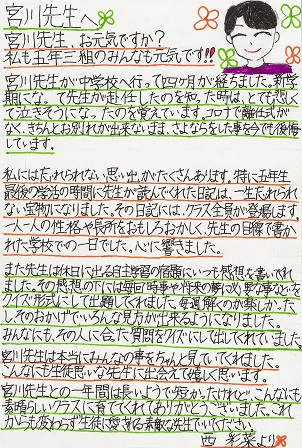 宮川先生へ
宮川先生、お元気ですか?
私も五年三組のみんなも元気です!!
宮川先生が中学校へ行って四ヶ月が経ちました。新学
期になって先生が赴任したのを知った時は、とても悲しく
て泣きそうになったのを覚えています。コロナで離任式が
なく、きちんとお別れが出来ないまま、さよならをした事を今でも後悔
しています。
私には忘れられない思い出がたくさんあります。特に五年生
最後の学活の時間に先生が読んでくれた日記は、一生忘れられな
い宝物になりました。その日記には、クラス全員が登場します。
一人一人の性格や長所をおもしろおかしく、先生の目線で書か
れた学校での一日でした。心に響きました。
また先生は休日に出る自主学習の宿題にいつも感想を書いてくれ
ました。その感想の下には毎回、時事や将来の夢に必要な事などを
クイズ形式にして出題してくれました。毎週解くのが楽しかった
し、そのおかげでいろんな見方が出来るようになりました。
みんなにも、その人に合った質問をクイズにして出してくれていました。
宮川先生は本当にみんなの事をちゃんと見ていてくれました。
こんなにも生徒思いな先生に出会えて嬉しく思います。
宮川先生との一年間は長いようで短かったけれど、こんなにも
素晴らしいクラスに育ててくれてありがとうございました。これ
からも変わらず生徒に愛される素敵な先生でいてください。
西 彩菜より